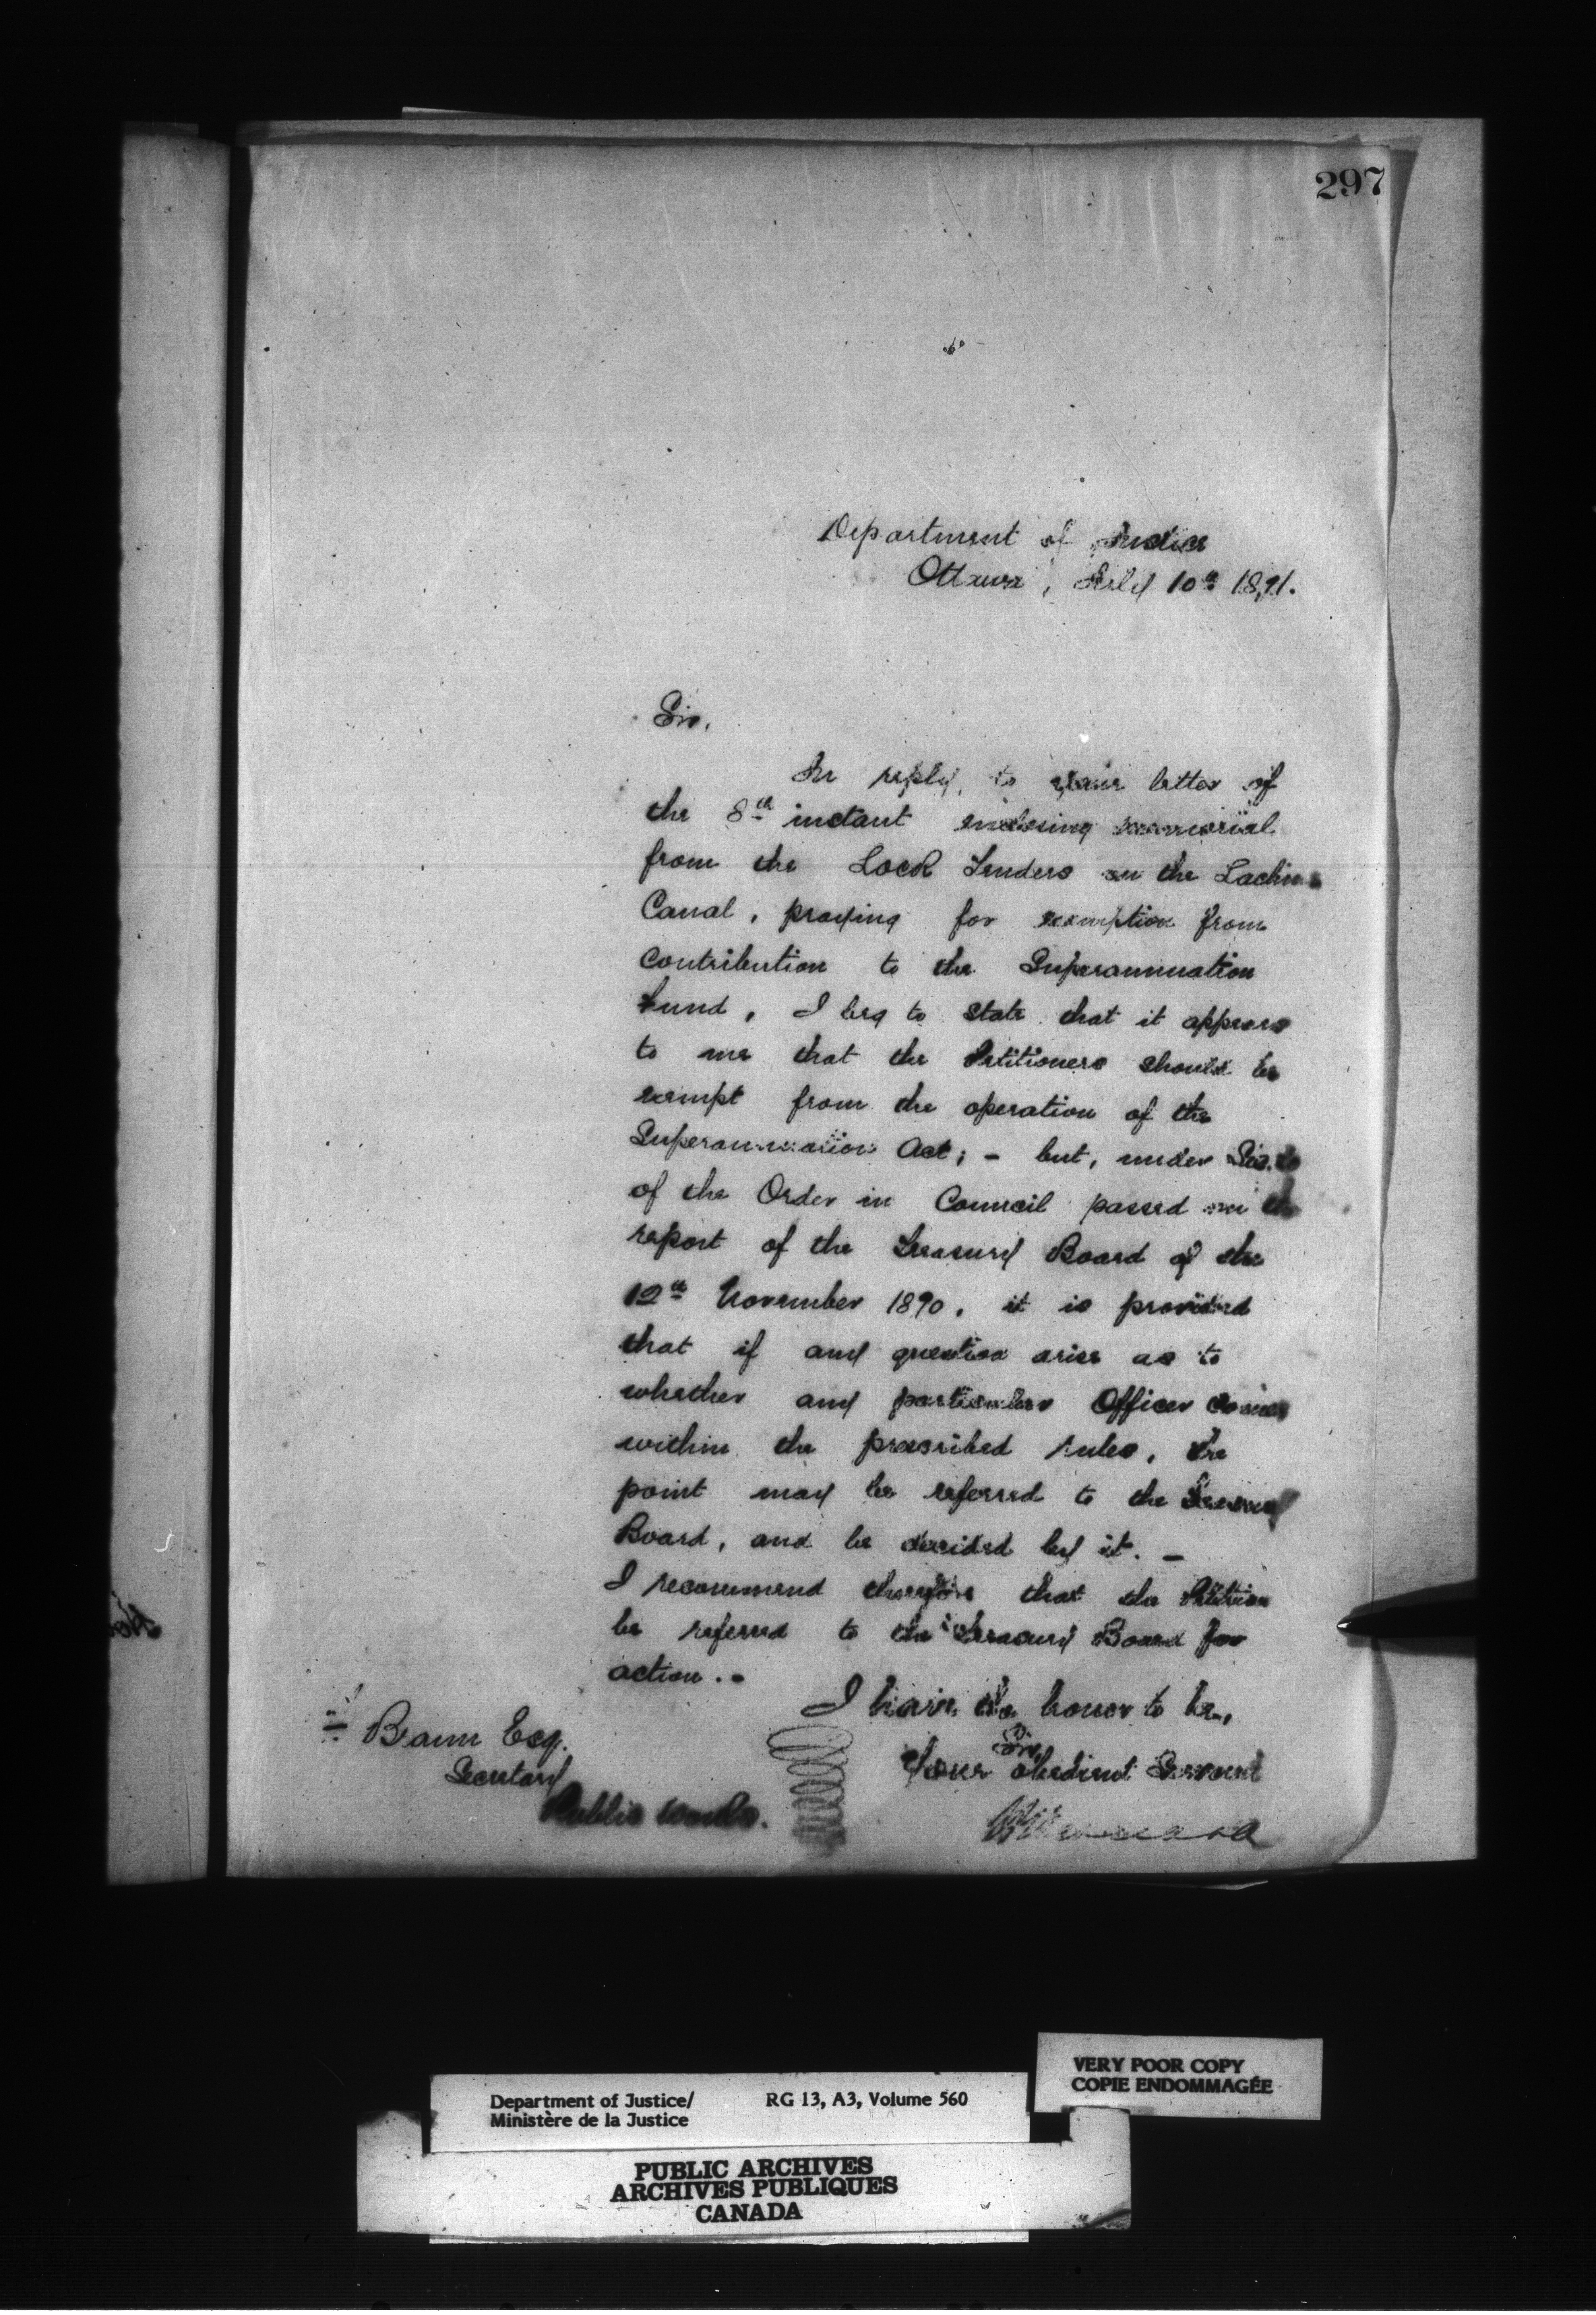 297
Department of Justice
Ottawa, July 10th 1891.
Sir,
In reply, to your letter of
the 8th instant enclosing memorial
from the Lock Tenders on the Lachine
Canal, praying for exemption from
contribution to the Superannuation
Fund, I beg to state that it appears
to me that the Petitioners should be
exempt from the operation of the
Superannuation Act; - but, under
of the Order in Council passed on the
report of the Treasury Board of the
12th November 1890, it is provided
that if any question arise as to
whether any particular Officer comes
within the prescribed rules, the
point may be referred to the Treasury
Board, and be decided by it. -
I recommend therefore that the Petition
be referred to the Treasury Board for
action. -
I have the honor to be,
Sir,
Your obedient Servant
Braun Esq.
Secretary
Public Works.
VERY POOR COPY
COPIE ENDOMMAGÉE
Department of Justice/ RG 13, A3, Volume 560
Ministère de la Justice
PUBLIC ARCHIVES
ARCHIVES PUBLIQUES
CANADA